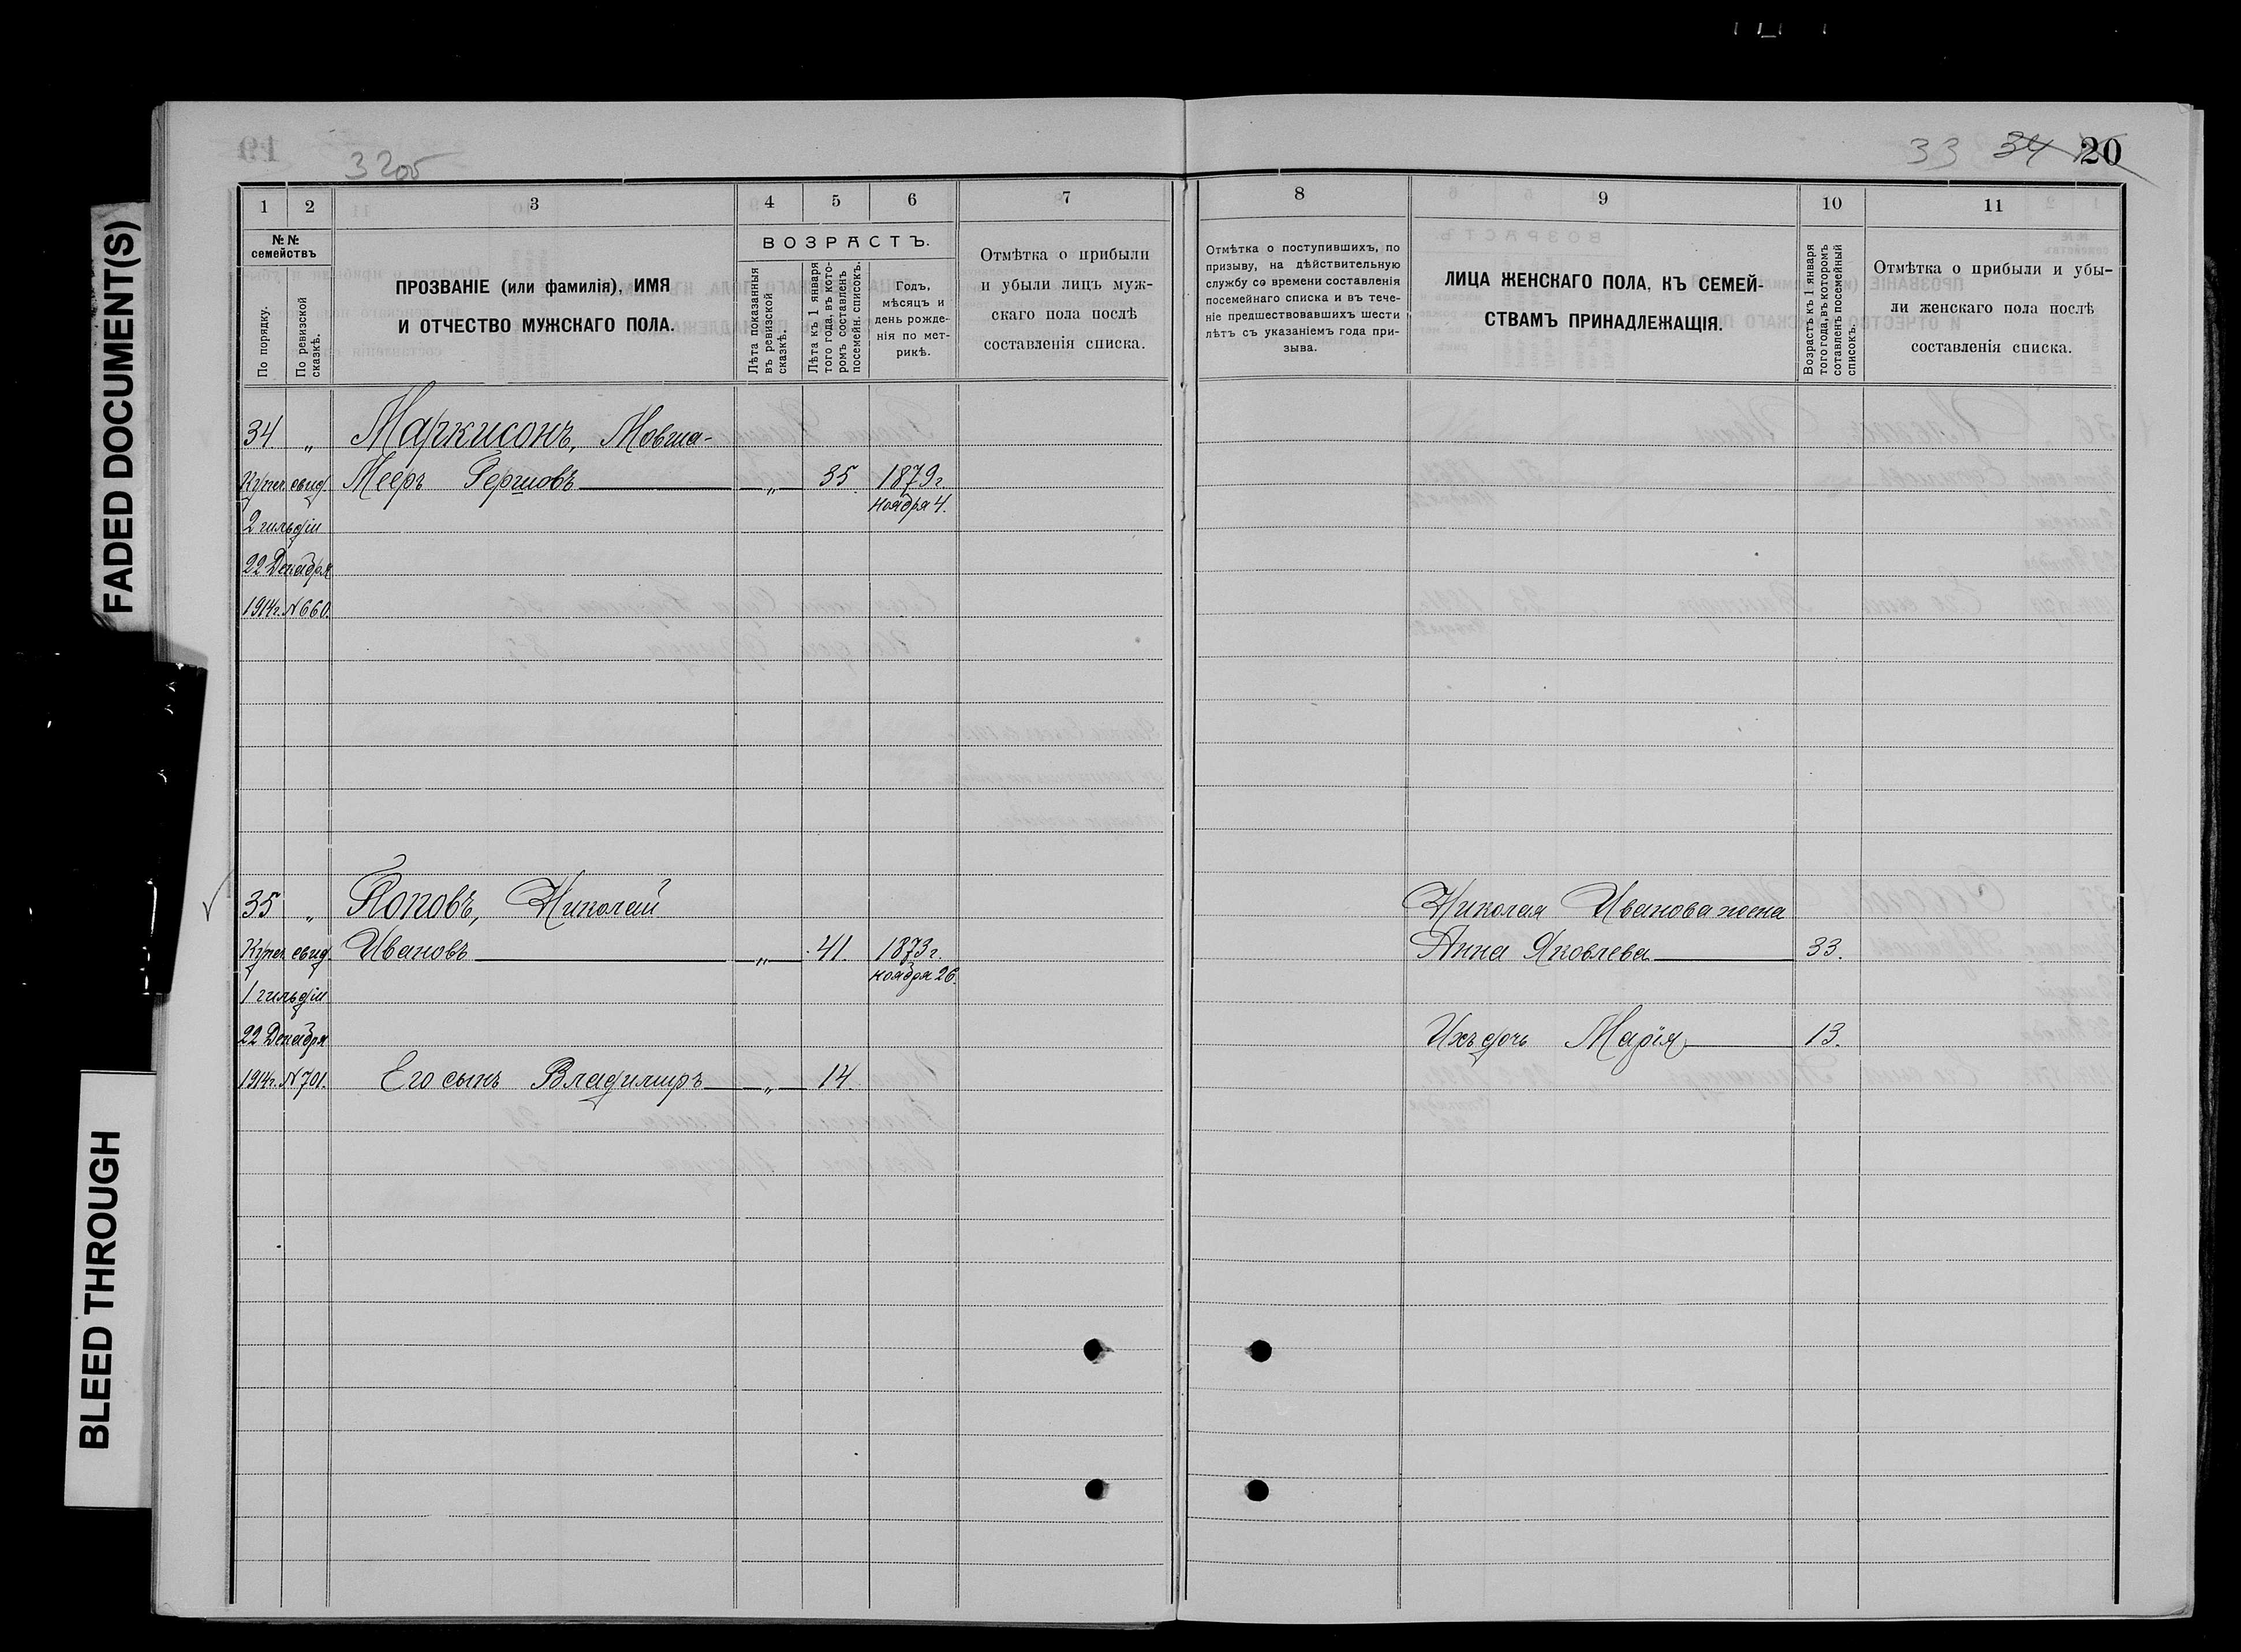 FADED DOCUMENT(S)
BLEED THROUGH
19
3205
33 34 20
1 2 3 4 5 6 7
№№ семействъ
По порядку.
По ревизской сказкѣ.
ПРОЗВАНІЕ (или фамилія), ИМЯ
И ОТЧЕСТВО МУЖСКАГО ПОЛА.
ВОЗРАСТЪ.
Лѣта показанныя
въ ревизской
сказкѣ.
Лѣта къ 1 января
того года, въ кото-
ромъ составленъ
посемейн. списокъ.
Годъ,
мѣсяцъ и
день рожде-
нія по мет-
рикѣ.
Отмѣтка о прибыли
и убыли лицъ муж-
скаго пола послѣ
составленія списка.
34 „ Маркисонъ, Мовша-
Купеч. свид. Мееръ Гершовъ „ 35. 1879г.
ноября 4.
2 гильдіи
22 Декабря
1914г. №660.
35 „ Поповъ, Николай
Купеч. свид. Ивановъ „ 41. 1873г.
ноября 26.
1 гильдіи
22 Декабря
1914г. №701. Его сынъ Владимиръ „ 14.
8 9 10 11
Отмѣтка о поступившихъ, по
призыву, на дѣйствительную
службу со времени составленія
посемейнаго списка и въ тече-
ніе предшествовавшихъ шести
лѣтъ съ указаніемъ года при-
зыва.
ЛИЦА ЖЕНСКАГО ПОЛА, КЪ СЕМЕЙ-
СТВАМЪ ПРИНАДЛЕЖАЩІЯ.
Возрастъ къ 1 января
того года, въ которомъ
сотавленъ посемейный
списокъ.
Отмѣтка о прибыли и убы-
ли женскаго пола послѣ
составленія списка.
Николая Иванова жена
Анна Яковлева 33.
Ихъ дочь Марія 13.